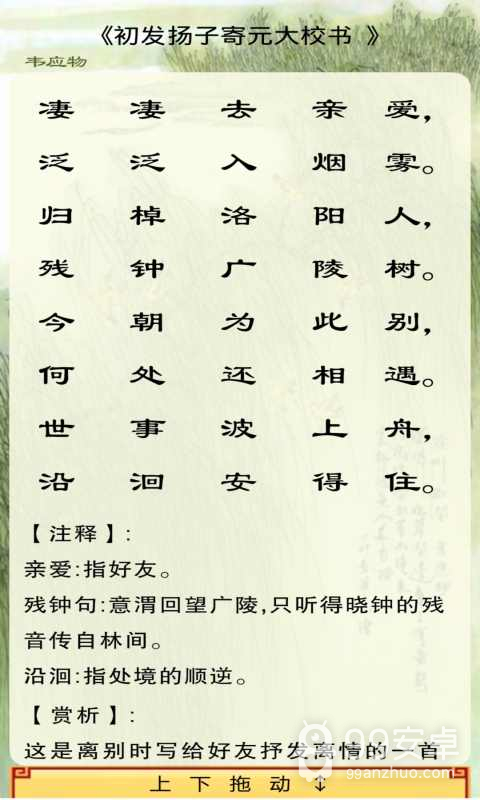 《初发扬子寄元大校书 》
韦应物
凄 凄 去 亲 爱,
泛 泛 入 烟 雾。
归 棹 洛 阳 人,
残 钟 广 陵 树。
今 朝 为 此 别,
何 处 还 相 遇。
世 事 波 上 舟,
沿 洄 安 得 住。
【注释】:
亲爱:指好友。
残钟句:意渭回望广陵,只听得晓钟的残
音传自林间。
沿洄:指处境的顺逆。
【赏析】:
这是离别时写给好友抒发离情的一首
上 下 拖 动 ↕
99安卓
99anzhuo.com